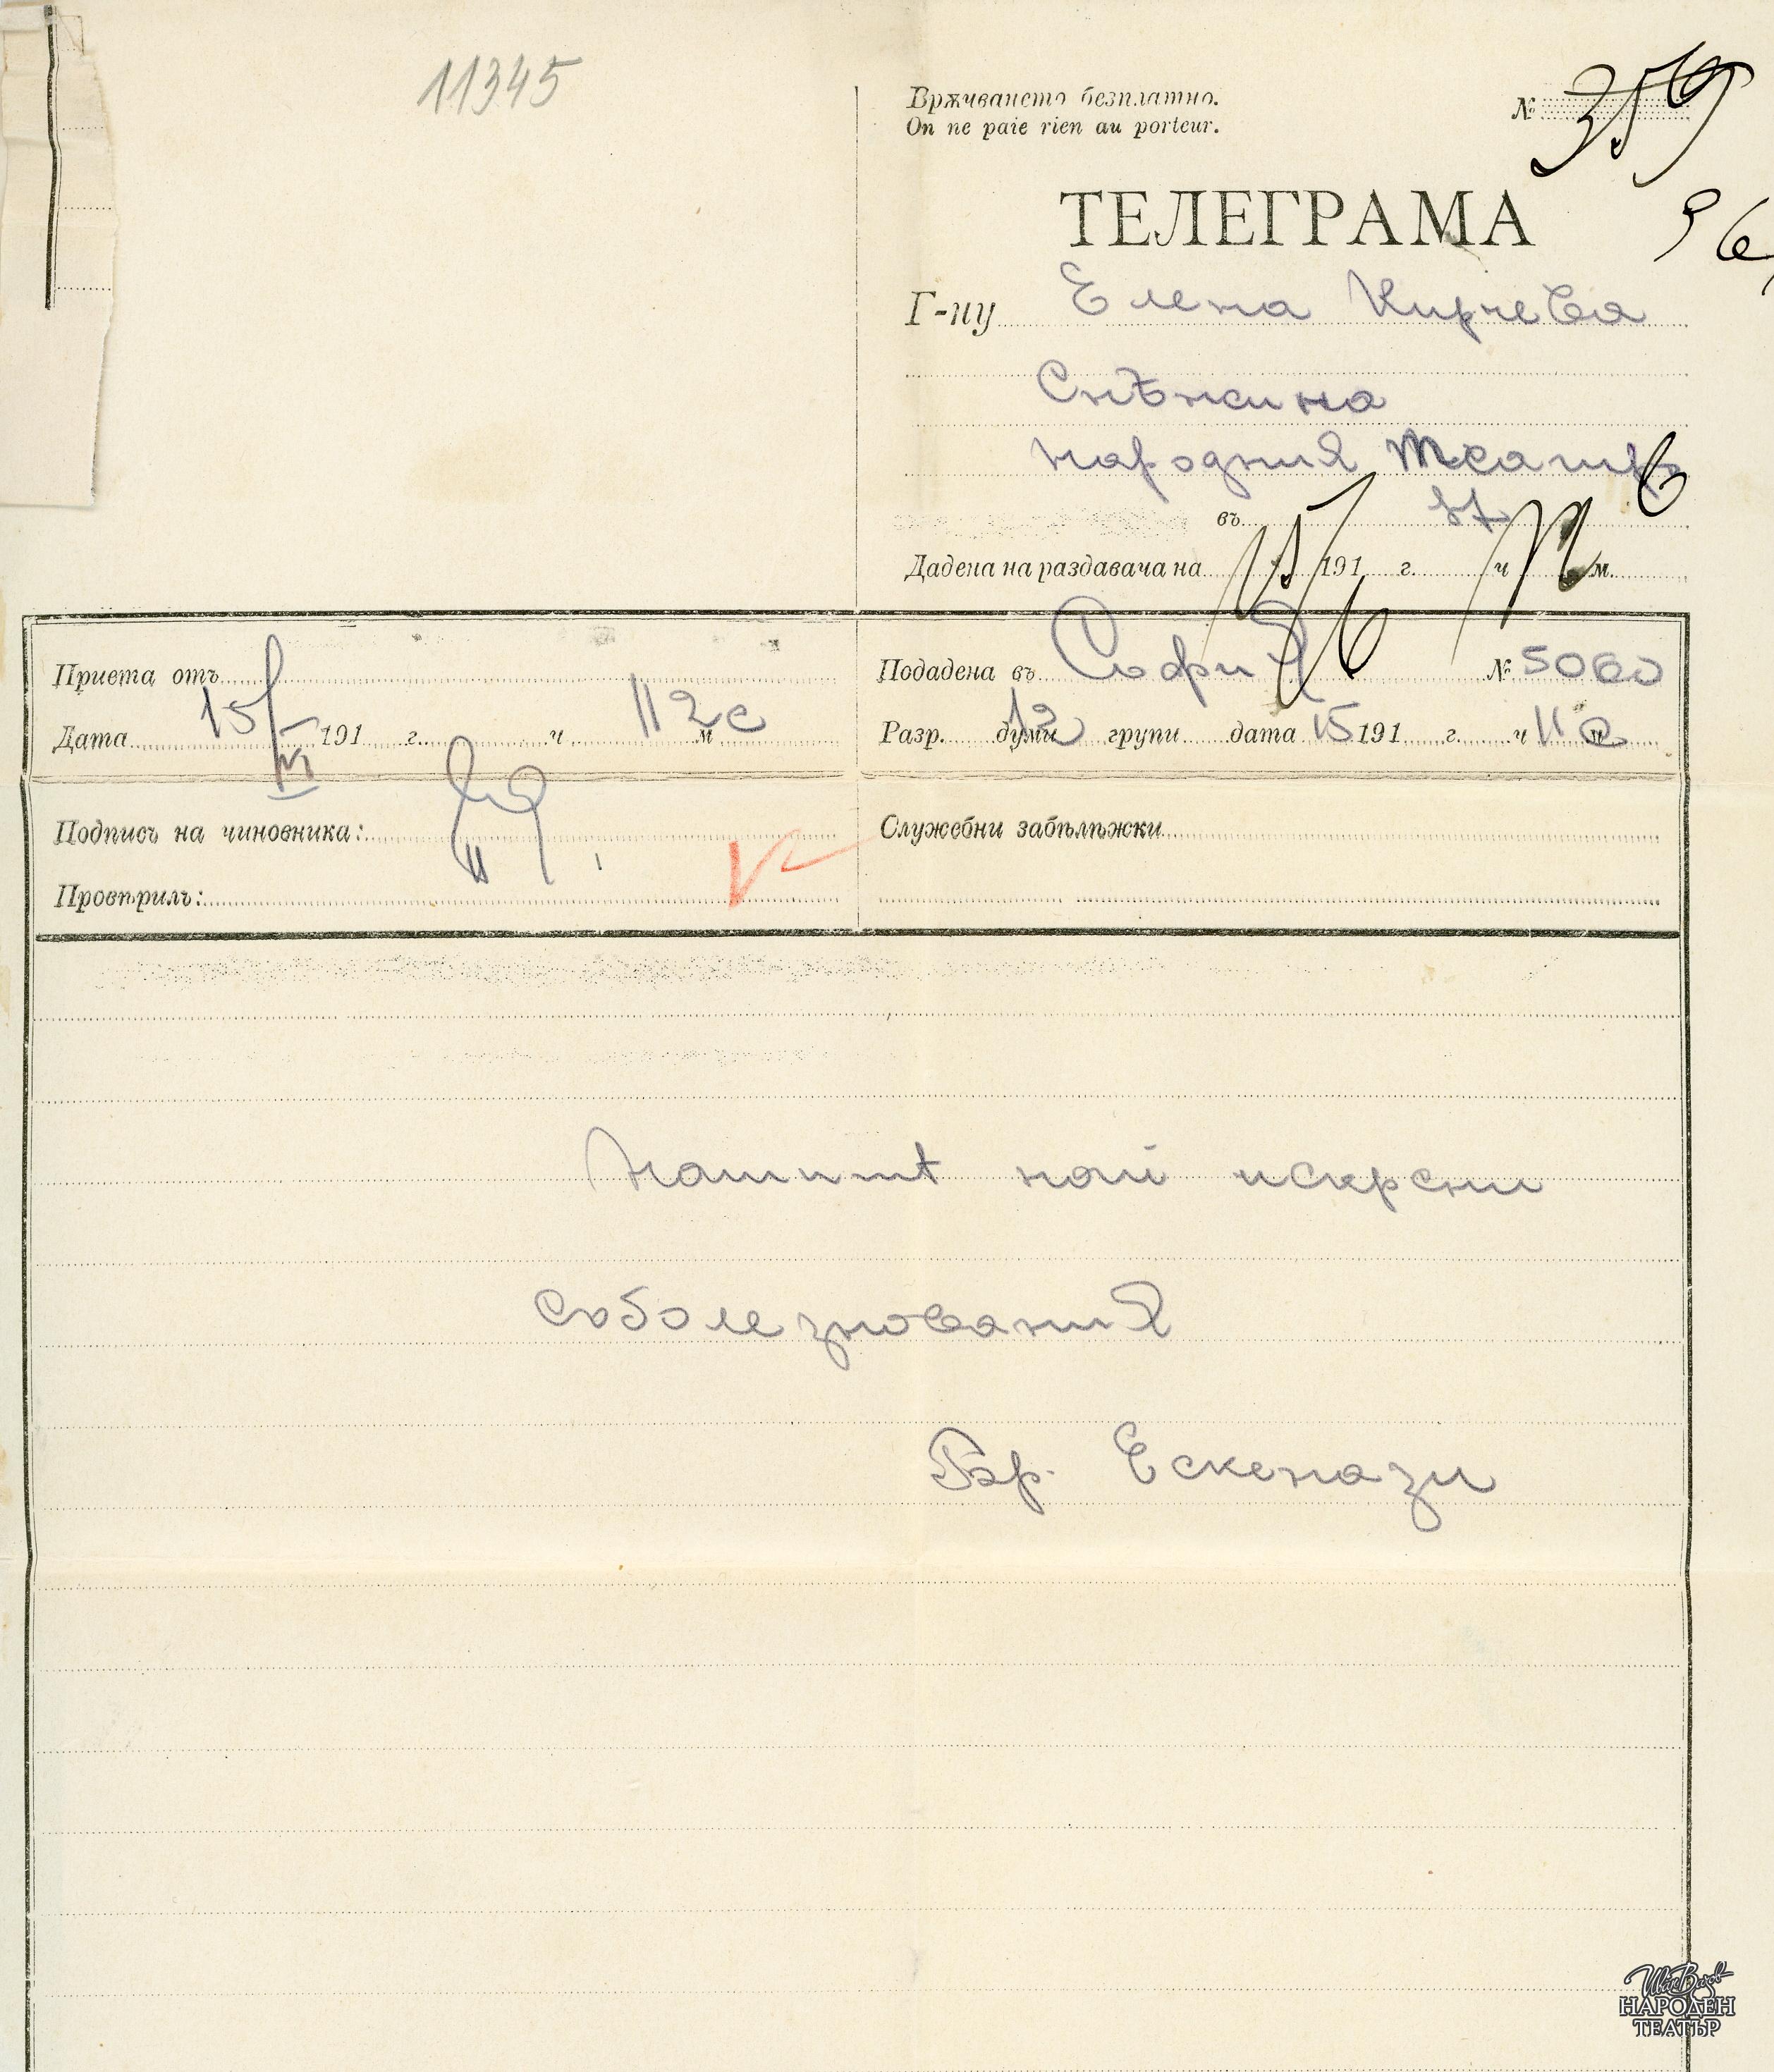 11345
Врѫчването безплатно.
On ne paie rien au porteur.
№ 359
ТЕЛЕГРАМА
Г-ну Елена Кирчева
Снѣжина
народния театръ
въ
Дадена на раздавача на 15/6 191 г. ч м.
Приета отъ
Дата 15/VI 191 г. ч 112с м
Подадена въ София № 5060
Разр. думи 12 групи дата 15 191 г. ч 11 м
Подписъ на чиновника:
Провѣрилъ:
Служебни забѣлѣжки
нашитѣ най искрени
соболезнования
Бр. Ескенази
Иван Вазов
НАРОДЕН
ТЕАТЪР